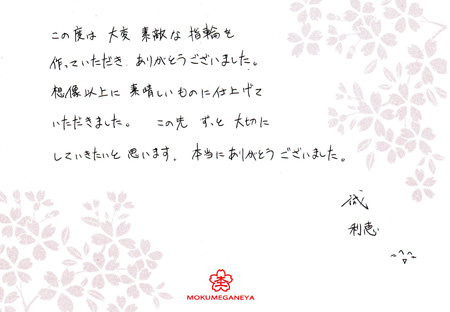 この度は 大変 素敵な 指輪を
作っていただき ありがとうございました。
想像以上に 素晴しいものに仕上げて
いただきました。 この先 ずっと 大切に
していきたいと 思います。本当にありがとう ございました。
利恵
MOKUMEGANEYA